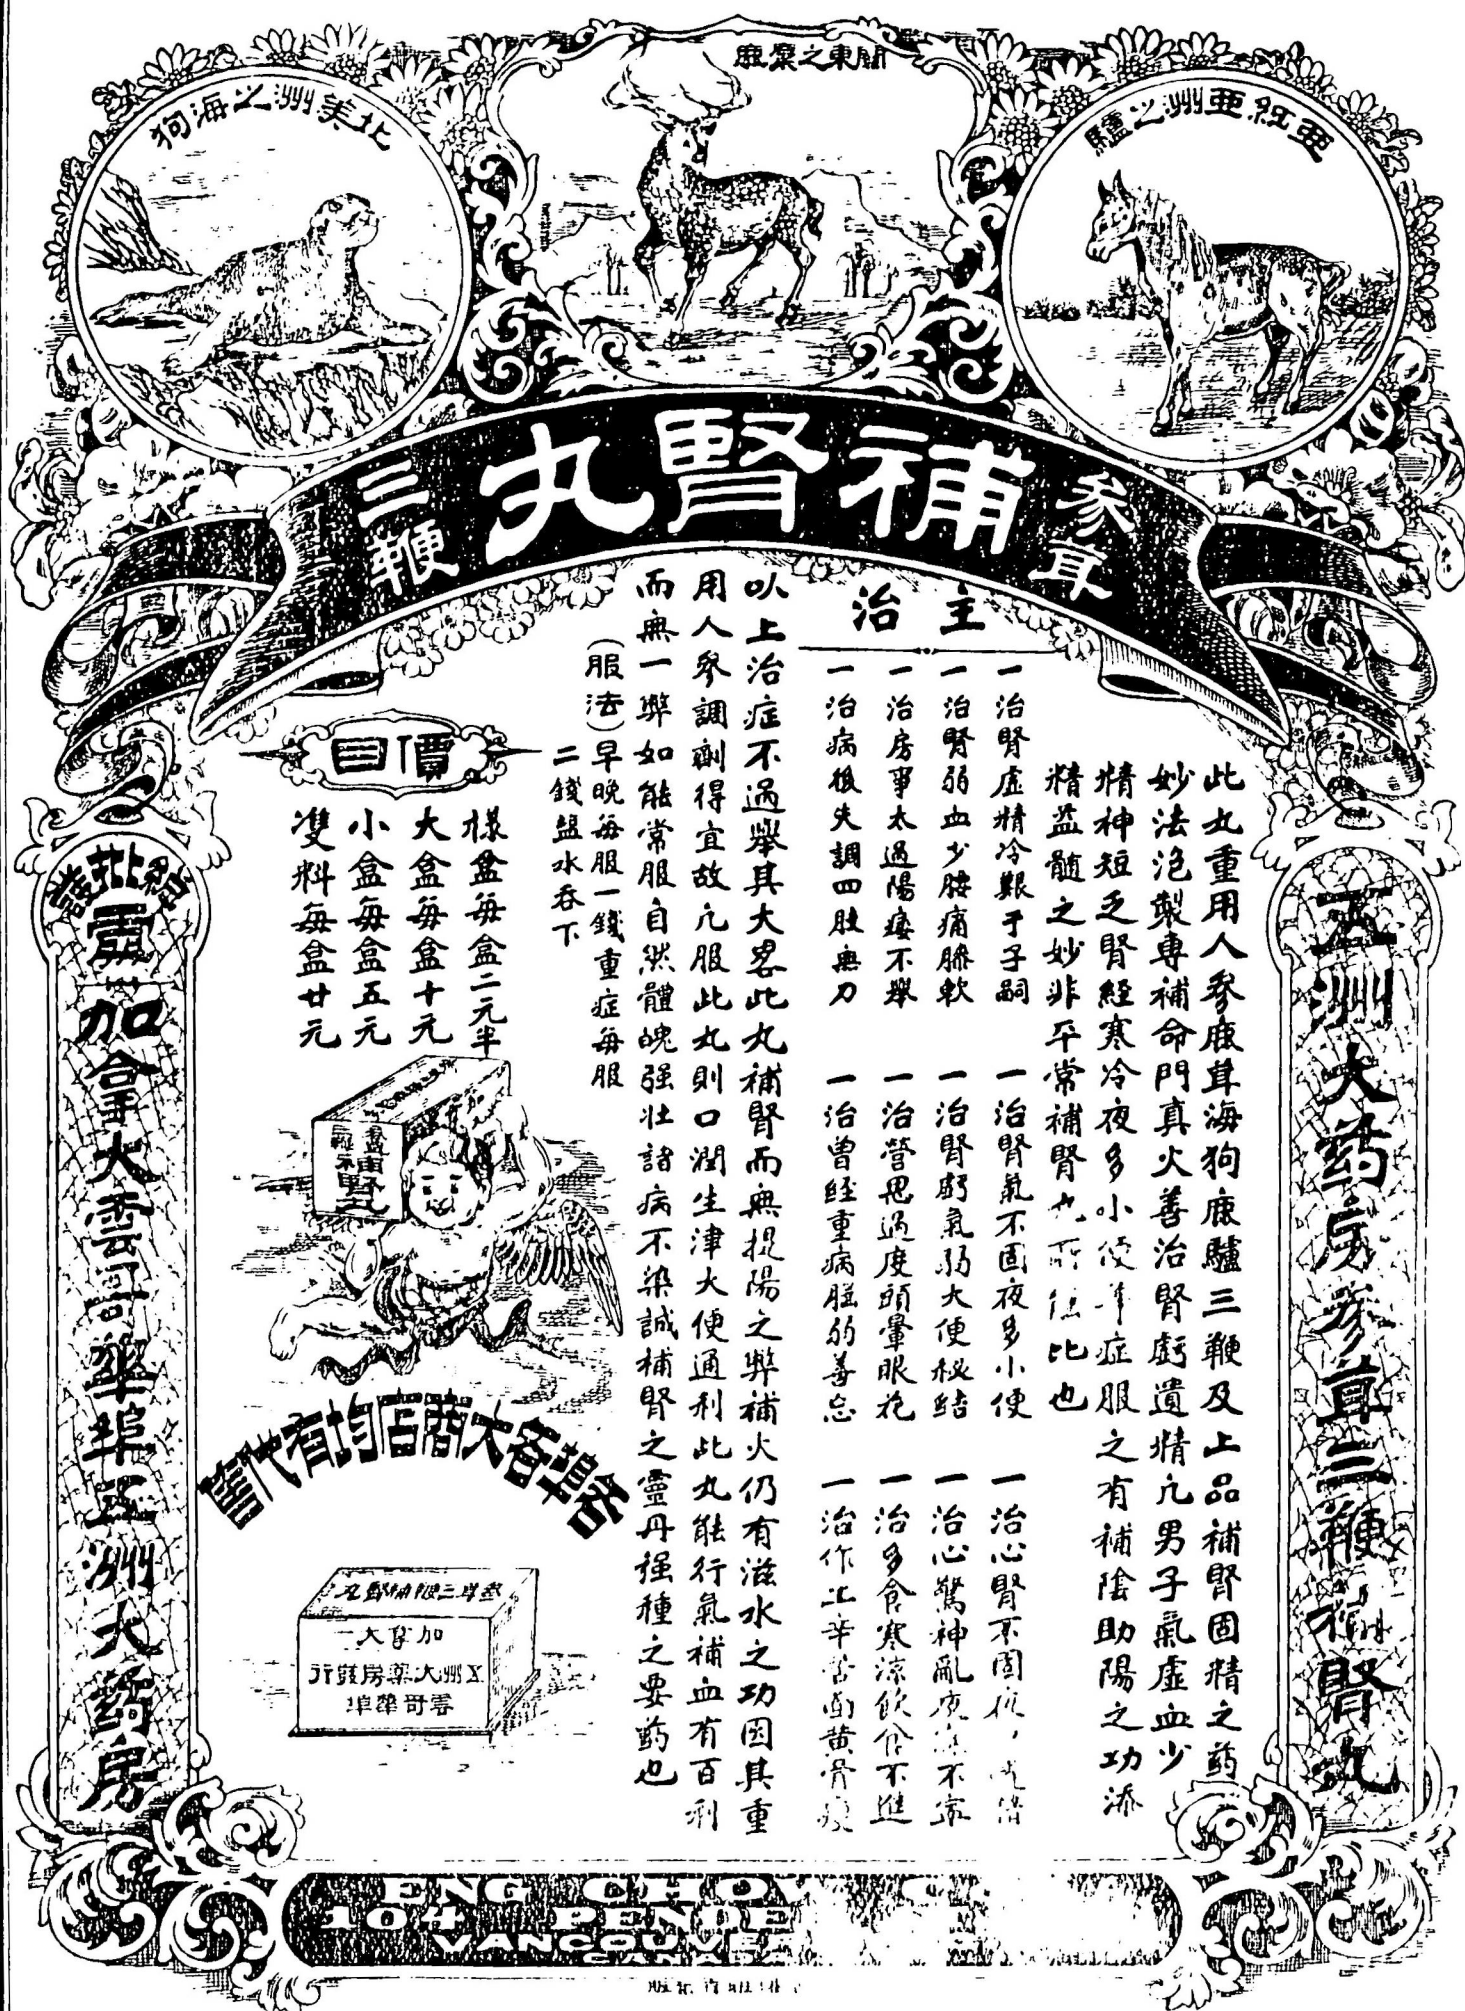 北美洲之海狗
關東之麋鹿
亜紅亜洲之驢
參茸
補腎丸
三鞭
五洲大药房參茸三鞭補腎丸
此丸重用人參鹿茸海狗鹿驢三鞭及上品補腎固精之药
妙法泡製專補命門真火善治腎虧遺精凢男子氣虛血少
精神短乏腎経寒冷夜多小便 症服之有補陰助陽之功添
精益髓之妙非平常補腎 比也
主治
一治腎虛精冷艱于子嗣
一治腎弱血少腰痛膝軟
一治房事太過陽痿不舉
一治病後失調四肢無力
一治腎氣不固夜多小便
一治腎虧氣弱大便秘結
一治營思過度頭暈眼花
一治曾経重病腦弱善忘
一治心腎不固
一治心驚神亂夜 不寧
一治多食寒涼飲食不進
一治作工辛苦面黄骨瘦
以上治症不過舉其大畧此丸補腎而無提陽之弊補火仍有滋水之功因其重
用人參調劑得宜故凢服此丸則口潤生津大便通利此丸能行氣補血有百利
而無一弊如能常服自然體魄强壮諸病不染誠補腎之靈丹强種之要药也
(服法)早晚每服一錢重症每服
二錢盐水吞下
價目
樣盒每盒二元半
大盒每盒十元
小盒每盒五元
雙料每盒廿元
補腎丸
各埠各大商店均有代售
參茸三鞭補腎丸
加拿大
五洲大藥房發行
雲哥華埠
總批發處
加拿大雲哥華埠五洲大药房
ENG CHO
104 PENDE
VANCOUVE